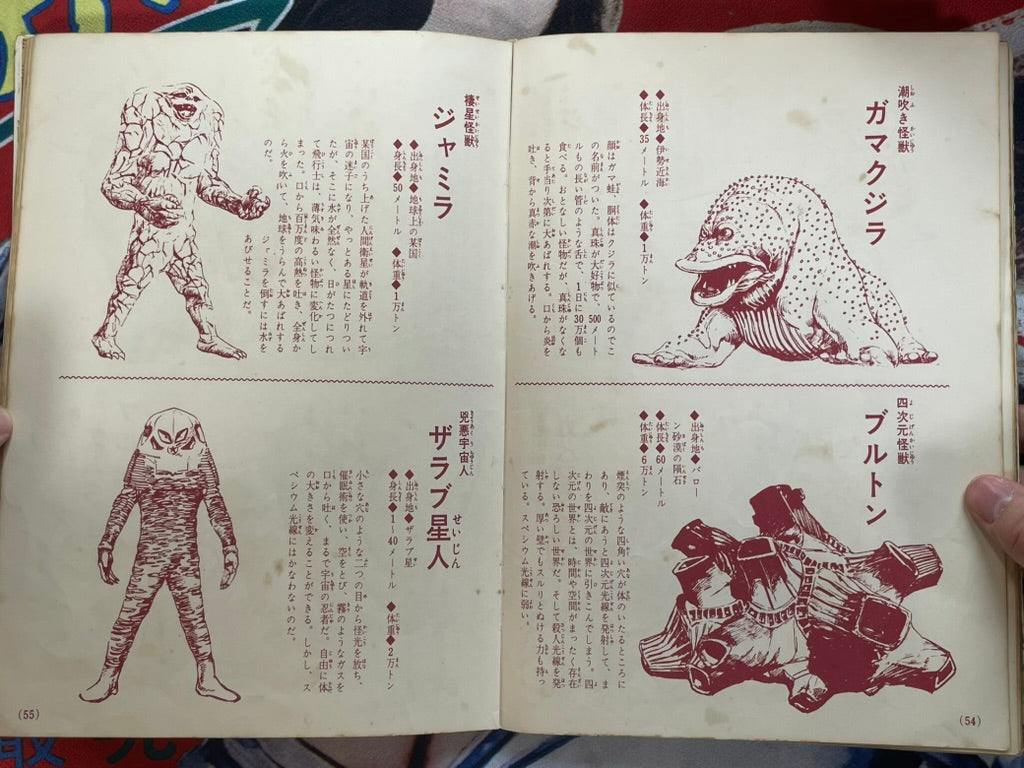 潮吹き怪獣
ガマクジラ
◆出身地◆伊勢近海
◆体長◆35メートル　◆体重◆1万トン
顔はガマ蛙、胴体はクジラに似ているのでこ
の名前がついた。真珠が大好物で、500メート
ルもの長い管のような舌で、1日に30万個も
食べる。おとなしい怪物だが、真珠がなくな
ると手当り次第に大あばれする。口から炎を
吐き、背から真赤な潮を吹きあげる。
四次元怪獣
ブルトン
◆出身地◆バロー
ン砂漠の隕石
◆体長◆60メートル
◆体重◆6万トン
煙突のような四角い穴が体のいたるところに
あり、敵にあうと四次元光線を発射して、ま
わりを四次元の世界に引きこんでしまう。四
次元の世界とは、時間や空間がまったく存在
しない恐ろしい世界だ。そして殺人光線を発
射する。厚い壁でもスルリとぬける力も持っ
ている。スペシウム光線に弱い。
(54)
棲星怪獣
ジャミラ
◆出身地◆地球上の某国
◆身長◆50メートル　◆体重◆1万トン
某国のうち上げた人間衛星が軌道を外れて宇
宙の迷子になり、やっとある星にたどりつい
たが、そこに水が全然なく、日がたつにつれ
て飛行士は、薄気味わるい怪物に変化してし
まった。口から百万度の高熱を吐き、全身か
ら火を吹いて、地球をうらんで大あばれする
のだ。　　ジャミラを倒すには水を
あびせることだ。
兇悪宇宙人
ザラブ星人
◆出身地◆ザラブ星
◆身長◆1〜40メートル　◆体重◆2万トン
小さな穴のような二つの目から怪光を放ち、
催眠術を使い、空をとび、霧のようなガスを
口から吐く、まるで宇宙の忍者だ。自由に体
の大きさを変えることができる。しかし、ス
ペシウム光線にはかなわないのだ。
(55)